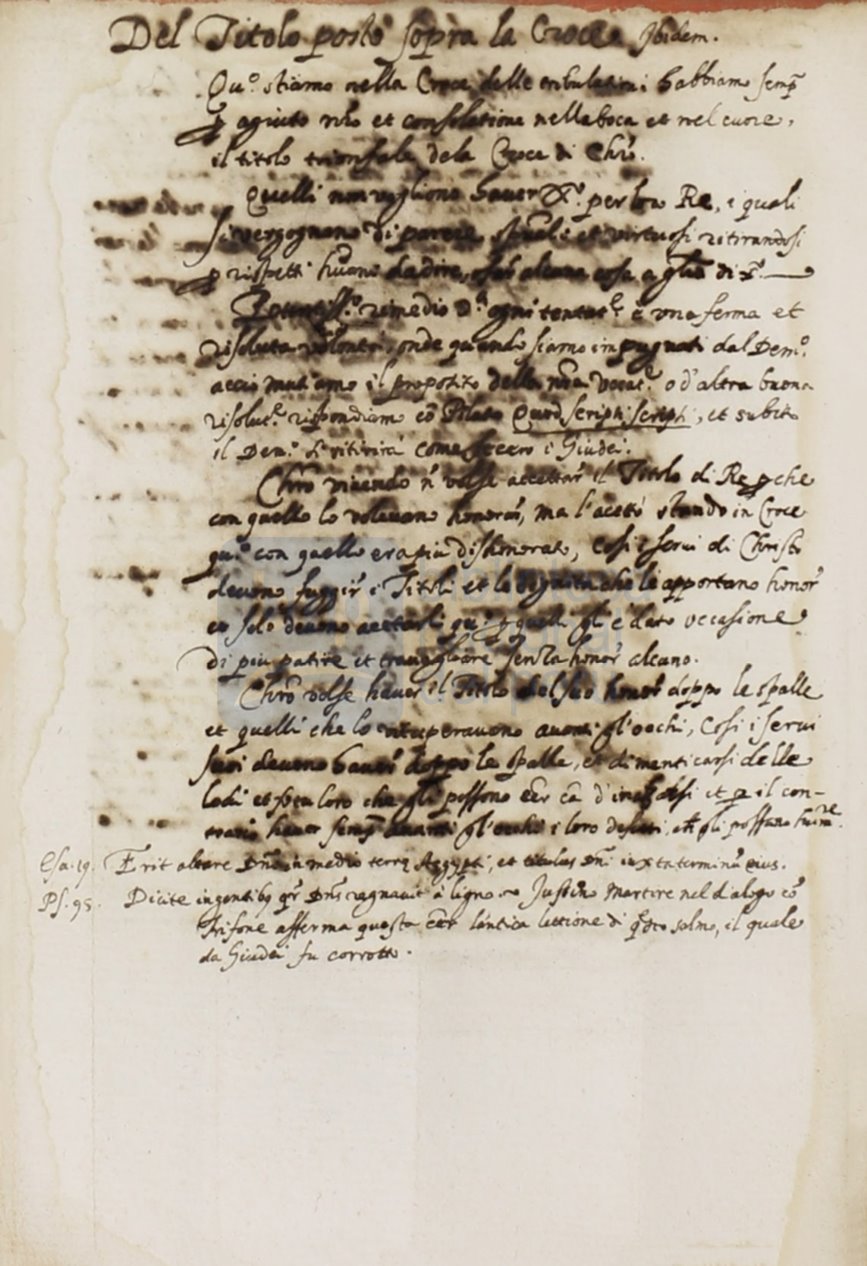 Del Titolo posto sopra la Croce Ibidem.
Qu.º stiamo nella Croce delle tribulationi habbiamo semp
p agiuto nrõ et consolatione nella boca et nel cuore,
il titolo trionfale dela Croce di Chrõ.
Quelli non vogliono haver X.º per loro Re, i quali
si vergognano di parere spũali et virtuosi ritirandosi
p rispetti huãni da dire, alcuna cosa a glã di X.º
Potentiss.º rimedio d.ª ogni tentat.e è una ferma et
risoluta volontà, onde quando siamo impugnati dal Dem.º
acciò mutiamo il proposito della nrã vocat.e o d'altra buona
risolut.e rispondiam cõ Pilato Quod scripsi scripsi, et subito
il Dem.º si ritirirà come fecero i Giudei.
Chrõ vivendo nõ volse accettar il Titolo di Re pche
con quello lo volevano honorar, ma l'acettò stando in Croce
qu.º con quello era più dishonorato, Cosi i servi di Christo
devono fuggir i Titoli et le dignità che li apportano honor
et solo devono acettarli qu.º p quelli gli è dato occasione
di piu patire et travagliare senza honor alcuno.
Chrõ volse haver il Titolo del suo honor doppo le spalle
et quelli che lo vituperavono avanti gl'occhi, Cosi i servi
suoi devono haver doppo le spalle, et dimenticarsi delle
lodi et loro che gli possono eer cã d'inalzarsi et p il con-
trario haver semp avanti gl'occhi i loro defetti, gli possano
Esa. 19. Erit altare Dñi in medio terrę Aegypti, et titulus Dñi iuxta terminũ eius.
Ps. 95. Dicite in gentibꝯ qr Dñs regnavit à ligno. Justino Martire nel dialogo cõ
Trifone afferma questa eer l'antica lettione di qsto salmo, il quale
da Giudei fu corrotto.